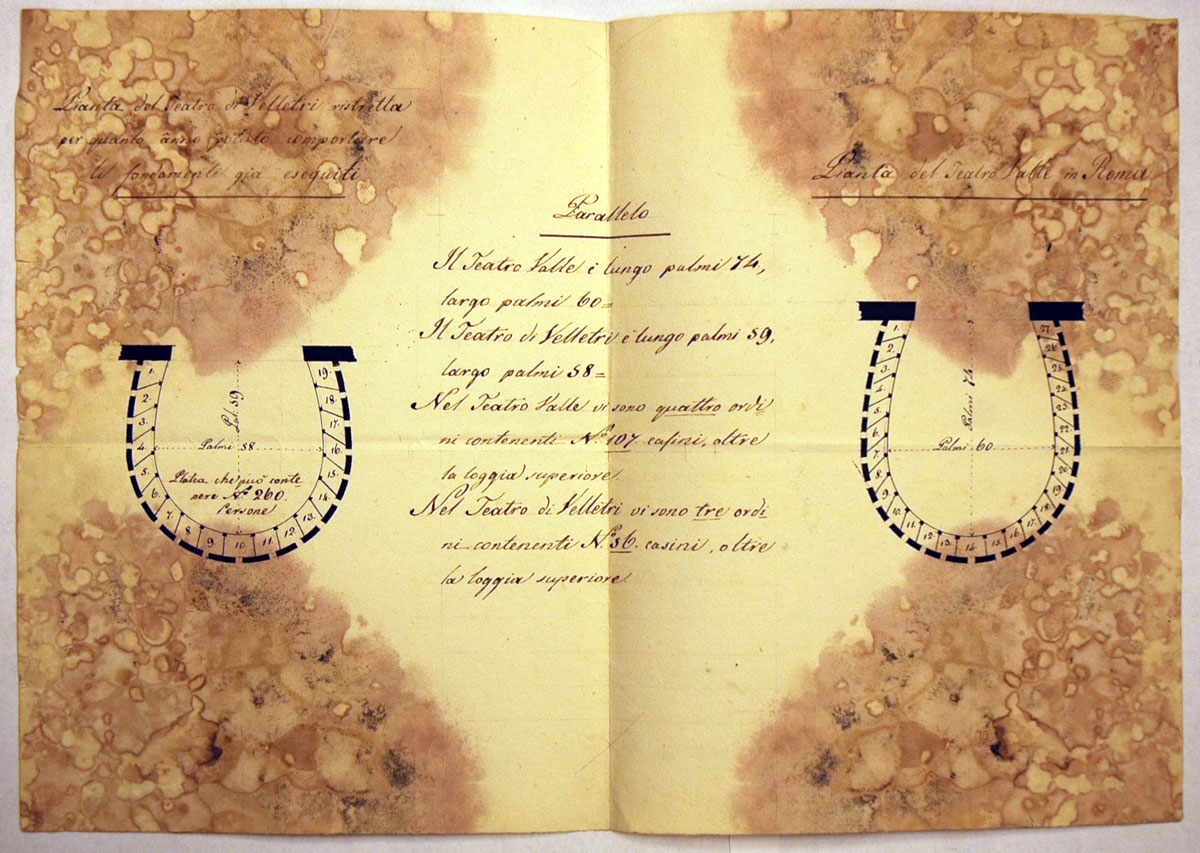 Pianta del Teatro di Velletri ristretta
per quanto ànno potuto comportare
li fondamenti già eseguiti
Pianta del Teatro Valle in Roma
Parallelo
Il Teatro Valle è lungo palmi 74,
largo palmi 60=
Il Teatro di Velletri è lungo palmi 59,
largo palmi 58=
Nel Teatro Valle vi sono quattro ordi
ni contenenti N.º 107. casini, oltre
la loggia superiore.
Nel Teatro di Velletri vi sono tre ordi
ni contenenti N.º 56. casini, oltre
la loggia superiore
1.
2.
3.
4.
5.
6.
7.
8
9
10.
11.
12.
13.
14.
15.
16.
17.
18.
19.
Pal. 59
Palmi 58
Platea che può conte
nere N.º 260.
Persone
1.
2.
3.
4.
5.
6.
7.
8.
9.
10.
11.
12.
13.
14.
15.
16.
17.
18.
19.
20.
21.
22.
23.
24.
25.
26.
27.
Palmi 74
Palmi 60